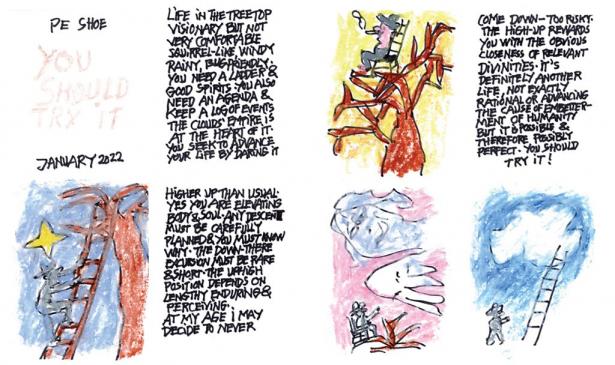 PE SHOE
YOU
SHOULD
TRY IT
JANUARY 2022
LIFE IN THE TREETOP
VISIONARY BUT NOT
VERY COMFORTABLE
SQUIRREL-LIKE, WINDY
RAINY, BUG-FRIENDLY.
YOU NEED A LADDER &
GOOD SPIRITS. YOU ALSO
NEED AN AGENDA &
KEEP A LOG OF EVENTS
THE CLOUDS' EMPIRE IS
AT THE HEART OF IT.
YOU SEEK TO ADVANCE
YOUR LIFE BY DARING IT
COME DOWN - TOO RISKY.
THE HIGH-UP REWARDS
YOU WITH THE OBVIOUS
CLOSENESS OF RELEVANT
DIVINITIES. IT'S
DEFINITELY ANOTHER
LIFE, NOT EXACTLY
RATIONAL OR ADVANCING
THE CAUSE OF EMBETTER-
MENT OF HUMANITY
BUT IT IS POSSIBLE &
THEREFORE POSSIBLY
PERFECT. YOU SHOULD
TRY IT!
HIGHER UP THAN USUAL.
YES YOU ARE ELEVATING
BODY & SOUL. ANY DESCENT
MUST BE CAREFULLY
PLANNED & YOU MUST KNOW
WHY. THE DOWN-THERE
EXCURSION MUST BE RARE
& SHORT. THE UP-HIGH
POSITION DEPENDS ON
LENGTHY ENDURING &
PERCEIVING.
AT MY AGE I MAY
DECIDE TO NEVER